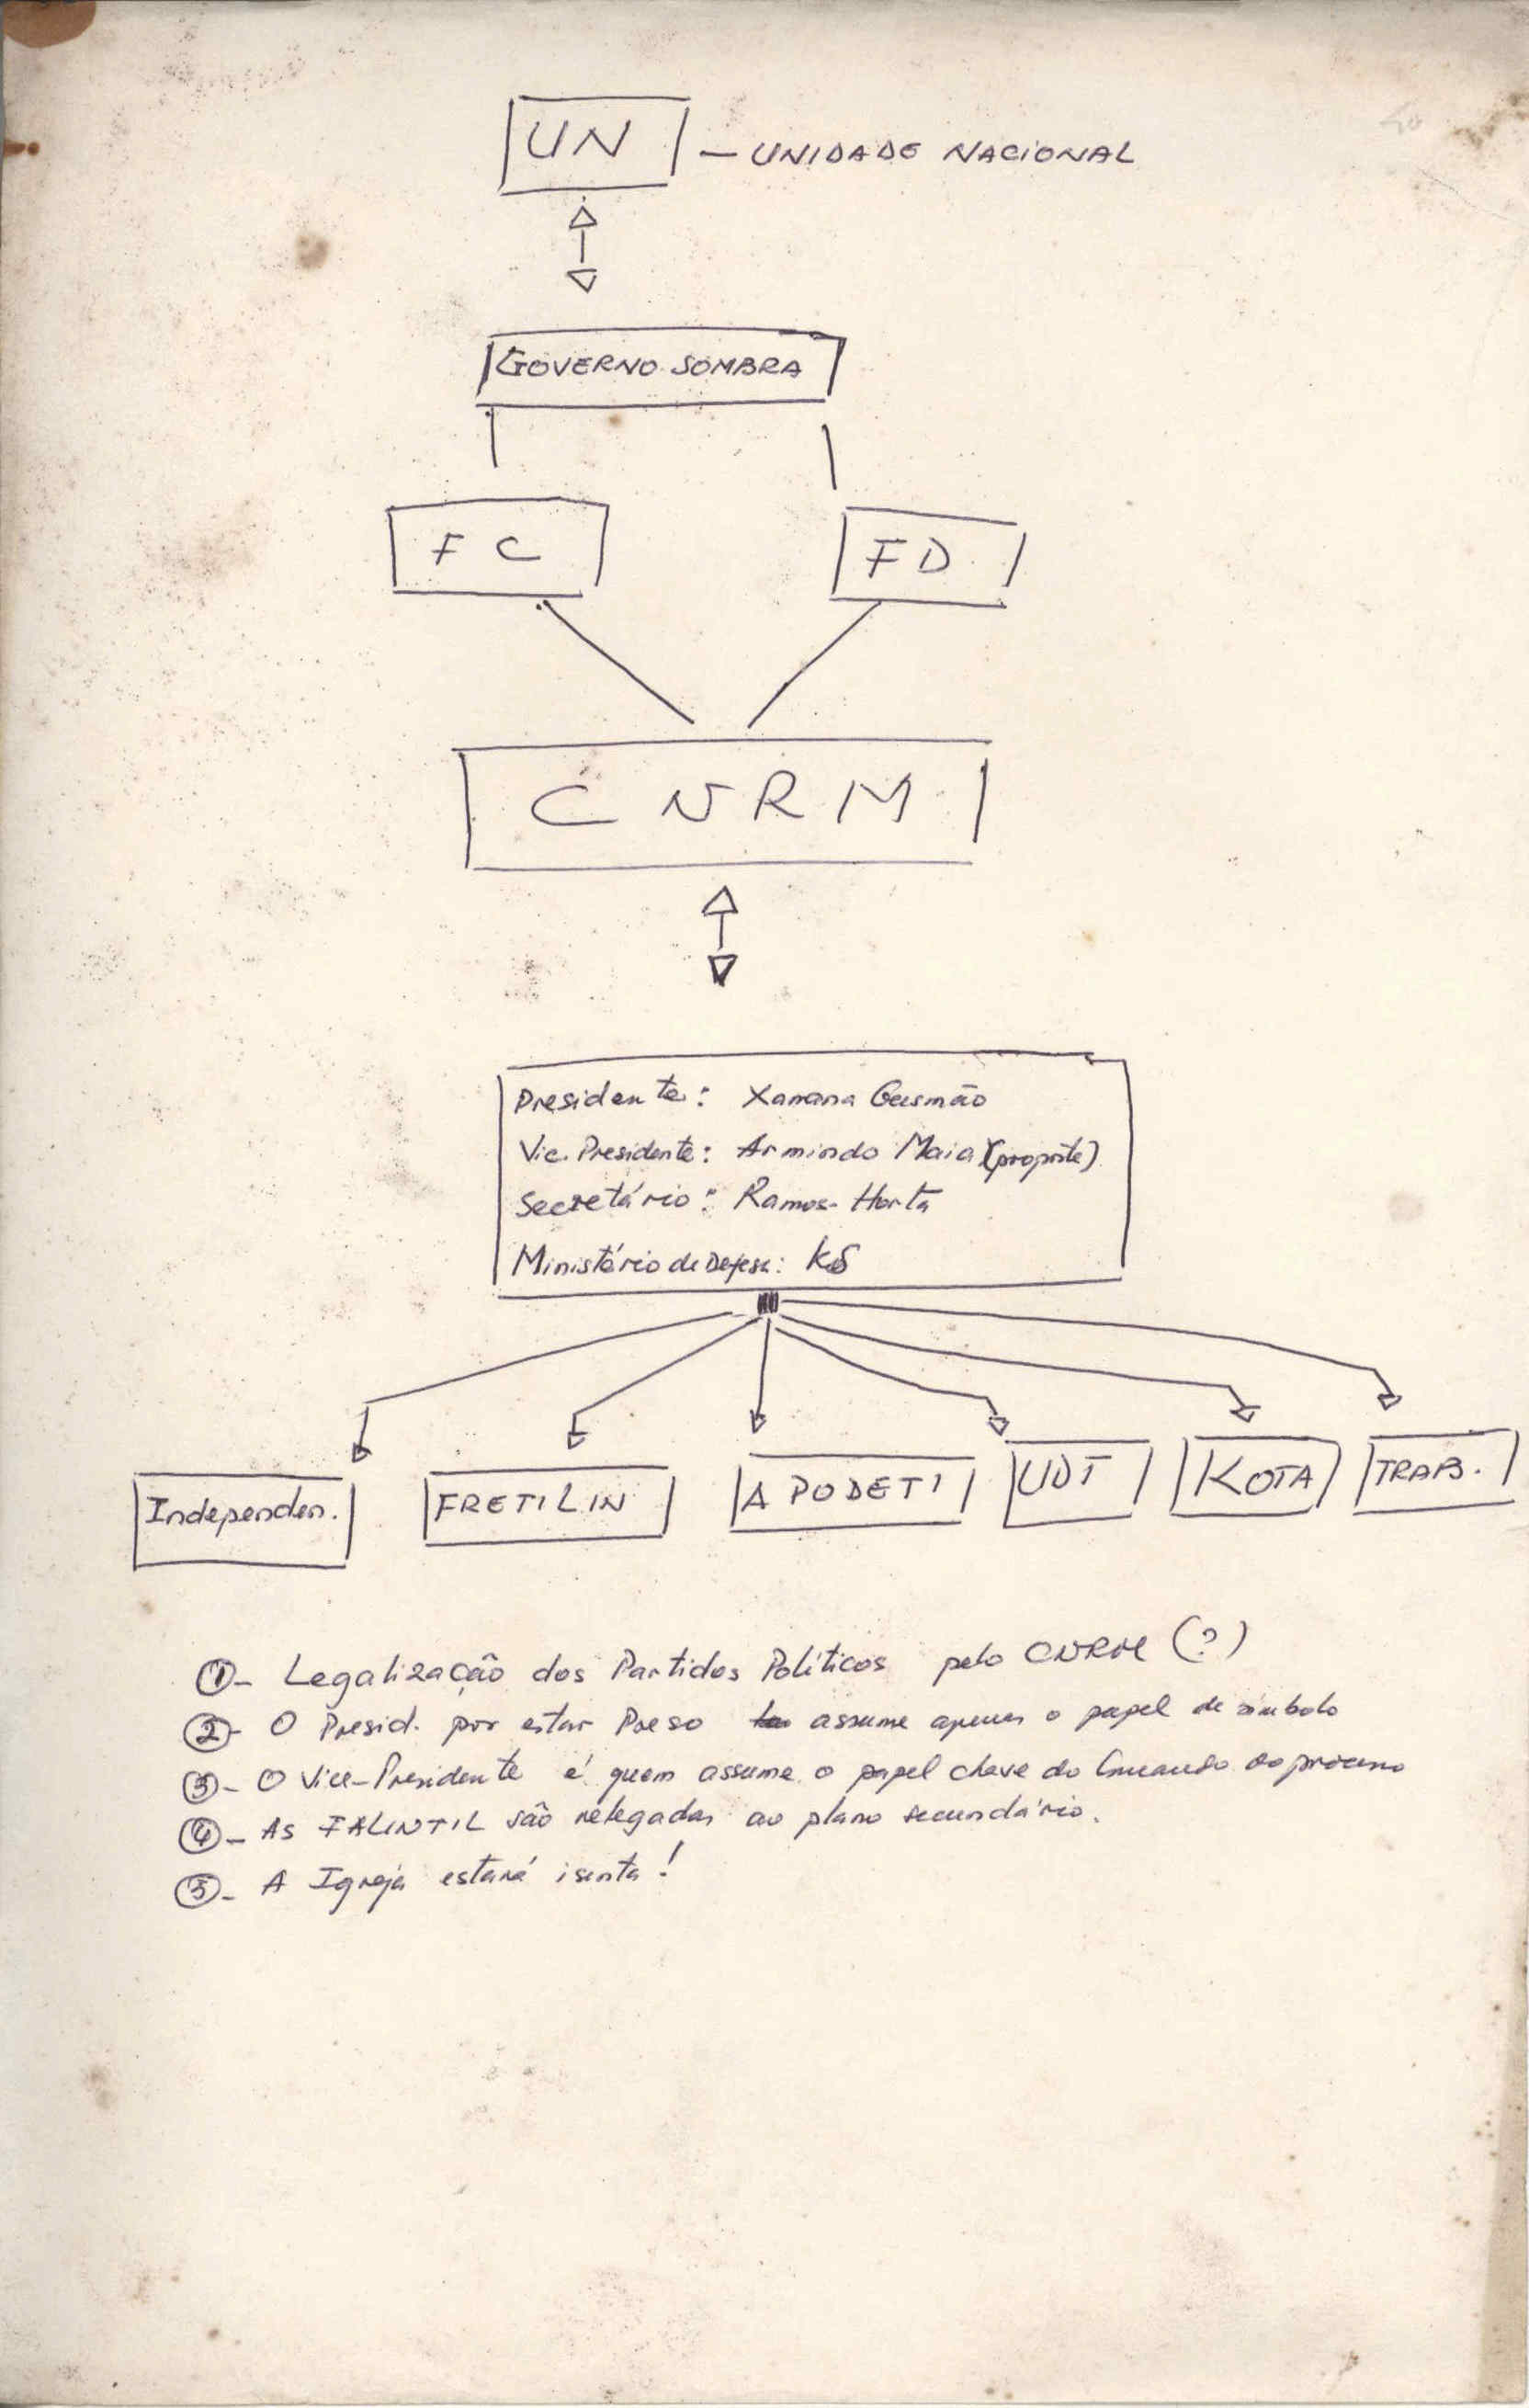 UN - UNIDADE NACIONAL
GOVERNO SOMBRA
FC
FD
CNRM
Presidente: Xanana Gusmão
Vic. Presidente: Armindo Maia (proposte)
Secretário: Ramos-Horta
Ministério de Defesa: KS
Independen.
FRETILIN
APODETI
UDT
KOTA
TRAB.
① - Legalização dos Partidos Políticos pelo CNRM (?)
② - O Presid. por estar Preso assume apenas o papel de símbolo
③ - O Vice-Presidente é quem assume o papel chave do Comando do processo
④ - As FALINTIL são relegadas ao plano secundário.
⑤ - A Igreja estará isenta!